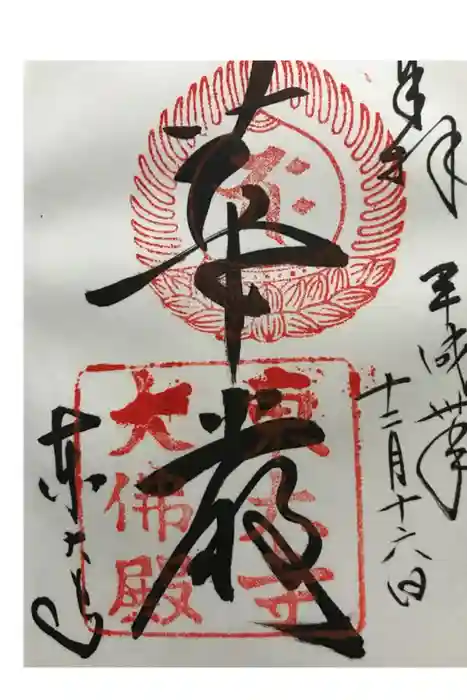 奉拝
平成卅年
十二月十六日
華厳
東大寺
大佛殿
東大寺